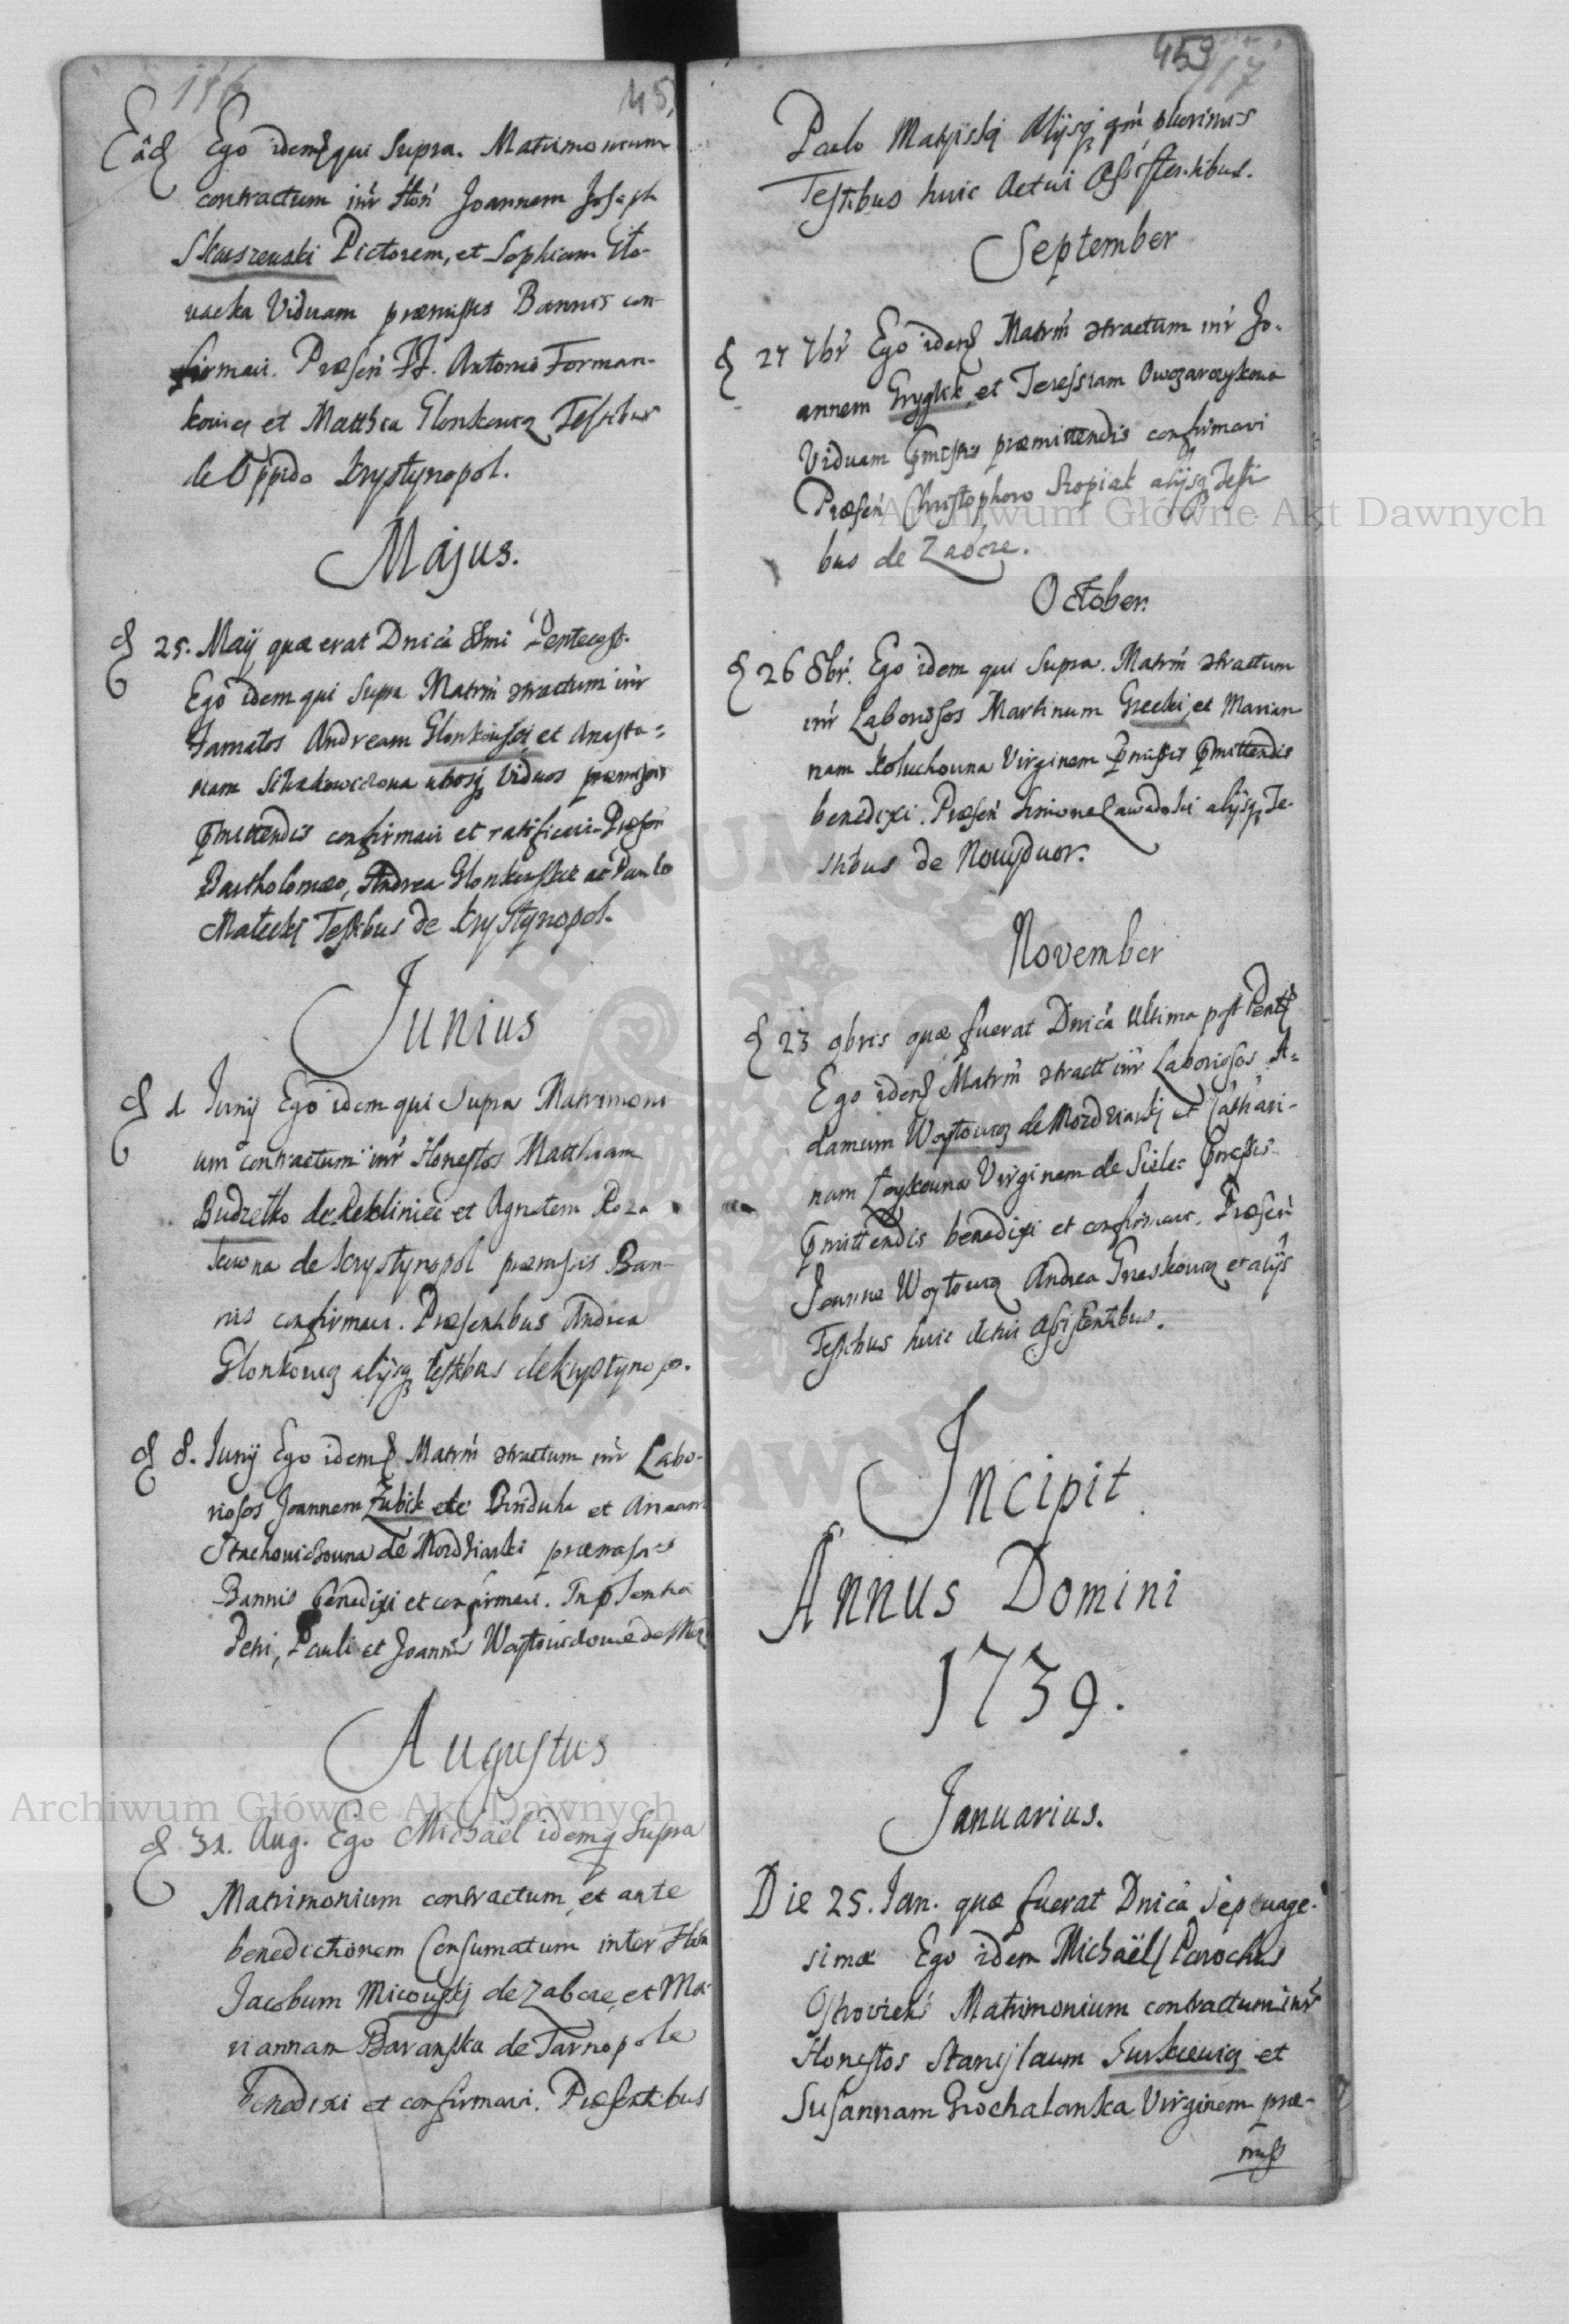 116
45
Eâd Ego idemq qui Supra. Matrimonium
contractum intr Hon Joannem Joseph
Skuszewski Pictorem, et Sophiam
Viduam præmissis Bannis con-
firmavi. Præsen FF. Antonio Forman-
kowicz et Matthia Glonkowicz Testibus
de Oppido Krystynopol.
Majus.
25. Maij quæ erat Dnicâ Pentecost.
Ego idem qui Supra Matrm ctractum intr
Famatos Andream et Anasta=
utrosq Viduos præmissis
pmittendis confirmavi et ratificavi. Præsen
Bartholomæo, Andrea ac Paulo
Małecki Testibus de Krystynopol.
Junius
1 Junij Ego idem qui Supra Matrimoni-
um contractum intr Honestos Matthiam
Budzetko de et Agnetem
de Krystynopol præmissis Ban-
nis confirmavi. Præsentibus Andrea
Glonkowicz alijsq testibus de Krystynopo.
8. Junij Ego idemq Matrm ctractum intr Labo-
riosos Joannem Zubik de et Annam
Stachowiczowna de præmissis
Bannis benedixi et confirmavi. In psentia
Petri, Pauli et Joannis
Augustus
31. Aug. Ego Michaël idemq Supra
Matrimonium contractum, et ante
benedictionem Consumatum inter Hon
Jacobum Micowskj de Zabcze, et Ma-
riannam Baranska de Tarnopole
benedixi et confirmavi. Præsentibus
453
117
Paulo alijsq qm plurimis
Testibus huic Actui Assistentibus.
September
27 7br Ego idemq Matrm ctractum intr Jo-
annem Gryglik, et Teressiam Owczarczykowa
Viduam pmissis præmittendis confirmavi
Præsen Christophoro Kropiak alijsq Testi-
bus de Zabcze.
October.
26 8br. Ego idem qui Supra. Matrm ctractum
intr Laboriosos Martinum Grecki, et Marian-
nam Koluchowna Virginem pmissis pmittendis
benedixi. Præsen Simione Zawadoski alijsq Te-
stibus de Nowydwor.
November
23 9bris quæ fuerat Dnicâ Ultima post Pent
Ego idemq Matrm ctract intr Laboriosos A=
damum Woytowicz de et Cathari-
nam Virginem de Sielec pmissis
pmittendis benedixi et confirmavi. Præsen
Joanne Woytowicz Andrea et alijs
Testibus huic Actui Assistentibus.
Incipit
Annus Domini
1739.
Januarius.
Die 25. Jan. quæ fuerat Dnicâ Septuage-
simæ Ego idem Michaël Parochus
Ostroviens Matrimonium contractum intr
Honestos Stanislaum Surkiewicz et
Susannam Grochalanska Virginem præ-
miss
Archiwum Główne Akt Dawnych
Archiwum Główne Akt Dawnych